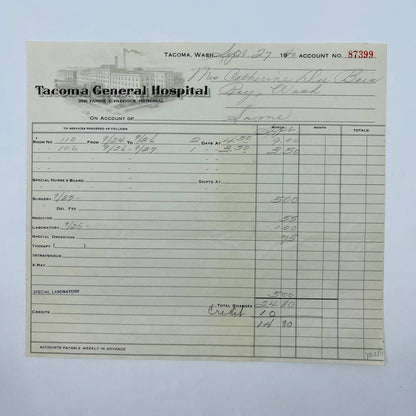 TACOMA, WASH. Sept. 27 19 ACCOUNT NO. 87399
Mrs Catherine Du Bois
Wash.
Tacoma General Hospital
THE FANNIE C. PADDOCK MEMORIAL
ON ACCOUNT OF Same
TO SERVICES RENDERED AS FOLLOWS MONTH MONTH TOTALS
ROOM NO. 110 FROM 9/24 TO 9/26 2 DAYS AT 4.50 9.00
106 9/26 - 9/27 1 2.50 2.50
SPECIAL NURSE'S BOARD SHIFTS AT
SURGERY 9/25- 5.00
DEL. FEE
MEDICINE 55
LABORATORY 9/25- 1.00
SPECIAL DRESSINGS 75
THERAPY ( )
INTRAVENOUS
X-RAY
SPECIAL LABORATORY 5.00
TOTAL CHARGES 24 80
CREDITS Credit 10
14 80
ACCOUNTS PAYABLE WEEKLY IN ADVANCE